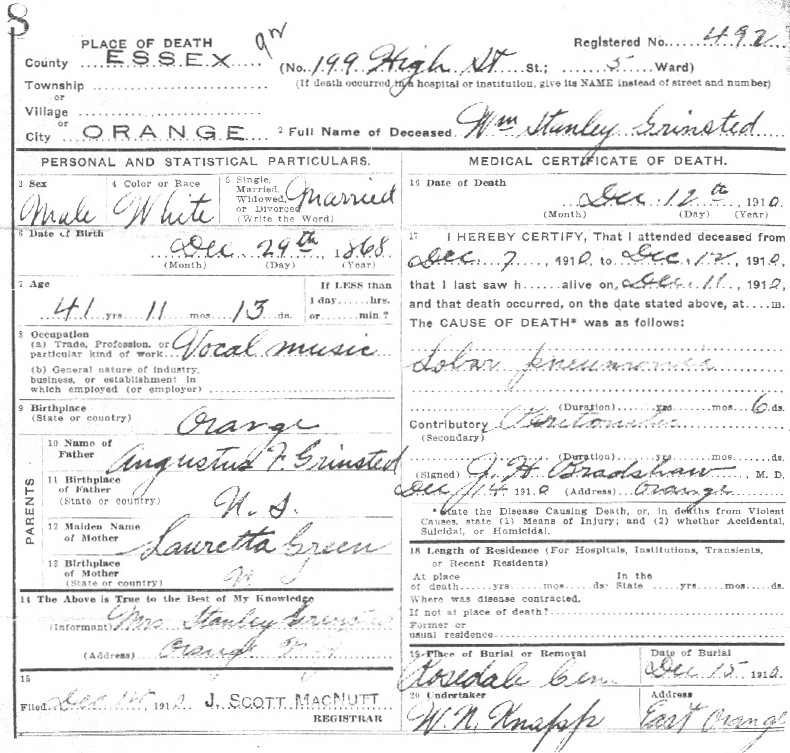 8
PLACE OF DEATH
County ESSEX
Registered No. 492
(No. 199 High St St.; 5 Ward)
(If death occurred in a hospital or institution, give its NAME instead of street and number)
Township
or
Village
or
City ORANGE
2 Full Name of Deceased Wm Stanley Grinsted
PERSONAL AND STATISTICAL PARTICULARS.
3 Sex
Male
4 Color or Race
White
5 Single,
Married,
Widowed,
or Divorced
(Write the Word)
Married
6 Date of Birth
Dec 29th 1868
(Month) (Day) (Year)
7 Age
41 yrs 11 mos 13 ds.
If LESS than
1 day hrs.
or min.?
8 Occupation
(a) Trade, Profession, or
particular kind of work Vocal music
(b) General nature of industry,
business, or establishment in
which employed (or employer)
9 Birthplace
(State or country) Orange
PARENTS
10 Name of
Father Augustus F. Grinsted
11 Birthplace
of Father
(State or country)
12 Maiden Name
of Mother Lauretta Green
13 Birthplace
of Mother
(State or country)
14 The Above is True to the Best of My Knowledge
(Informant) Mrs Stanley Grinsted
(Address) Orange
15
Filed Dec 1910 J. SCOTT MACNUTT
REGISTRAR
MEDICAL CERTIFICATE OF DEATH.
16 Date of Death
Dec 12th, 1910.
(Month) (Day) (Year)
17 I HEREBY CERTIFY, That I attended deceased from
Dec 7, 1910, to Dec 12, 1910,
that I last saw h alive on, Dec 11, 1910,
and that death occurred, on the date stated above, at m.
The CAUSE OF DEATH* was as follows:
Lobar pneumonia
(Duration) yrs mos 6 ds.
Contributory Peritonitis
(Secondary)
(Duration) yrs mos ds.
(Signed) J. H. Bradshaw, M. D.
Dec 14 1910 (Address) Orange
*State the Disease Causing Death, or, in deaths from Violent
Causes, state (1) Means of Injury; and (2) whether Accidental,
Suicidal, or Homicidal.
18 Length of Residence (For Hospitals, Institutions, Transients,
or Recent Residents)
At place In the
of death yrs mos ds. State yrs mos ds.
Where was disease contracted,
If not at place of death?
Former or
usual residence
19 Place of Burial or Removal
Rosedale Cem
Date of Burial
Dec 15 1910.
20 Undertaker
W. N. Knapp
Address
East Orange